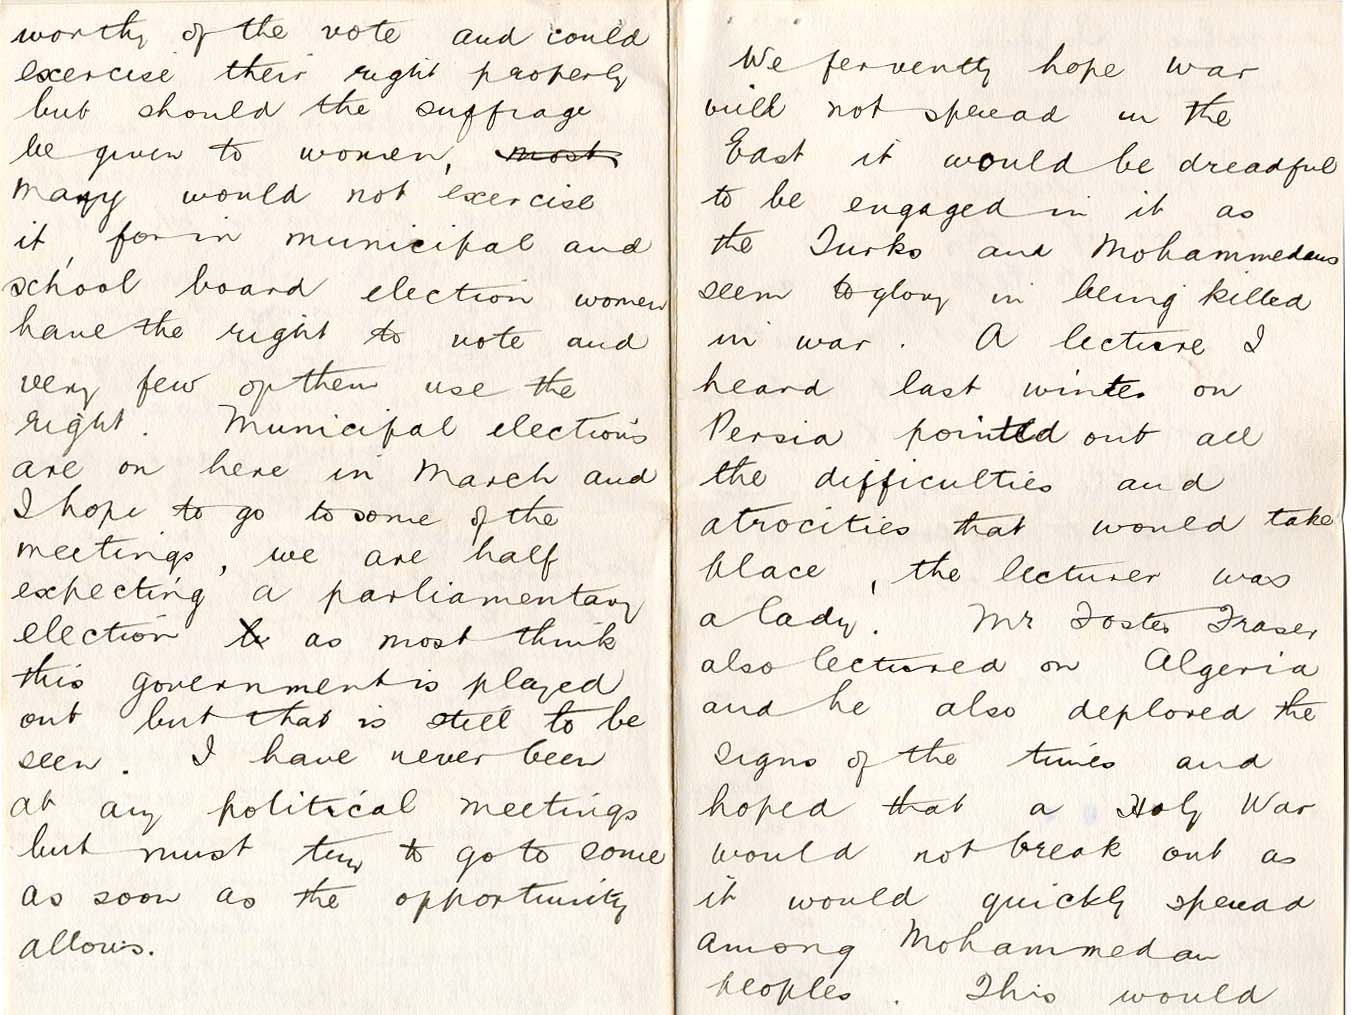 worthy of the vote and could
exercise their right properly
but should the suffrage
be given to women, most
many would not exercise
it, for in municipal and
school board election women
have the right to vote and
very few of them use the
right. Municipal elections
are on here in March and
I hope to go to some of the
meetings, we are half
expecting a parliamentary
election as most think
this government is played
out but that is still to be
seen. I have never been
at any political meetings
but must try to go to some
as soon as the opportunity
allows.
We fervently hope war
will not spread in the
East it would be dreadful
to be engaged in it as
the Turks and Mohammedans
seem to glory in being killed
in war. A lecture I
heard last winter on
Persia pointed out all
the difficulties and
atrocities that would take
place, the lecturer was
a lady. Mr Foster Fraser
also lectured on Algeria
and he also deplored the
signs of the times and
hoped that a Holy War
would not break out as
it would quickly spread
among Mohammedan
peoples. This would